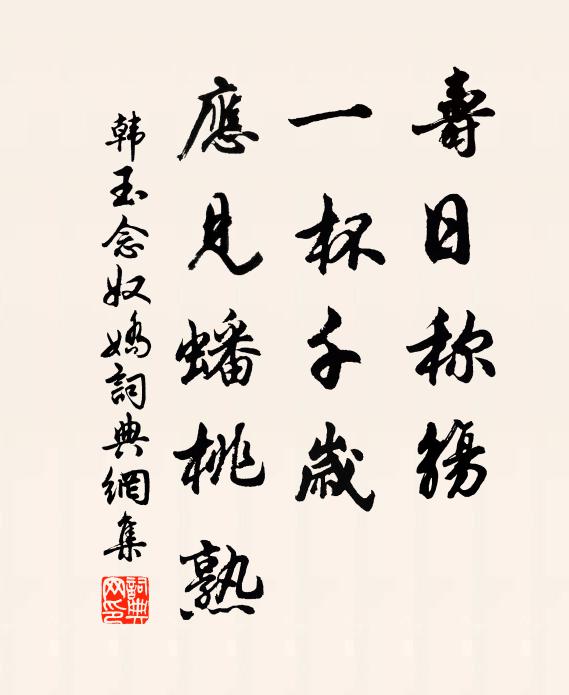 壽日称觴
一杯千歲
應見蟠桃熟
韩玉念奴嬌詞典網集
詞典网印